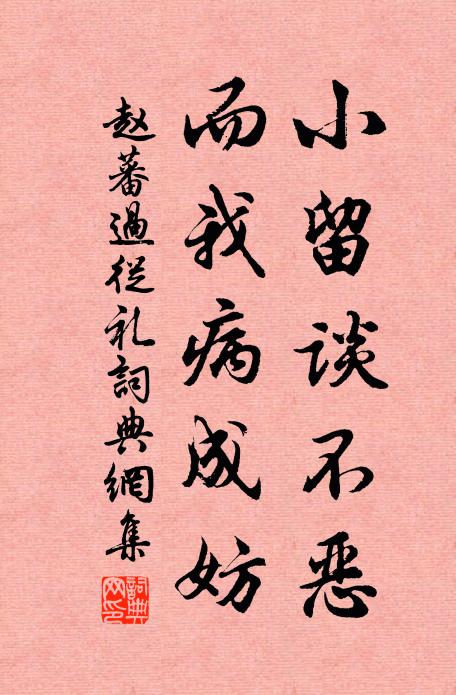 小留谈不恶
而我病成妨
赵蕃過從礼詞典網集
詞典网印